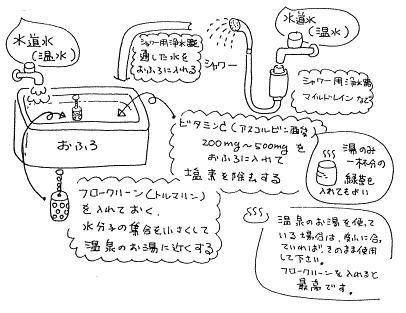 水道水
（温水）
シャワー用浄水器
通した水を
おふろに入れる
シャワー
水道水
（温水）
シャワー用浄水器
マイルドレインなど
おふろ
ビタミンC（アスコルビン酸）
200mg〜500mgを
おふろに入れて
塩素を除去する
湯のみ
一杯分の
緑茶を
入れてもよい
フロークリーン（トルマリン）
を入れておく。
水分子の集合を小さくして
温泉のお湯に近くする
温泉のお湯を使って
いる場合は、皮ふに合っ
ていればそのまま使用
して下さい。
フロークリーンを入れると
最高です。